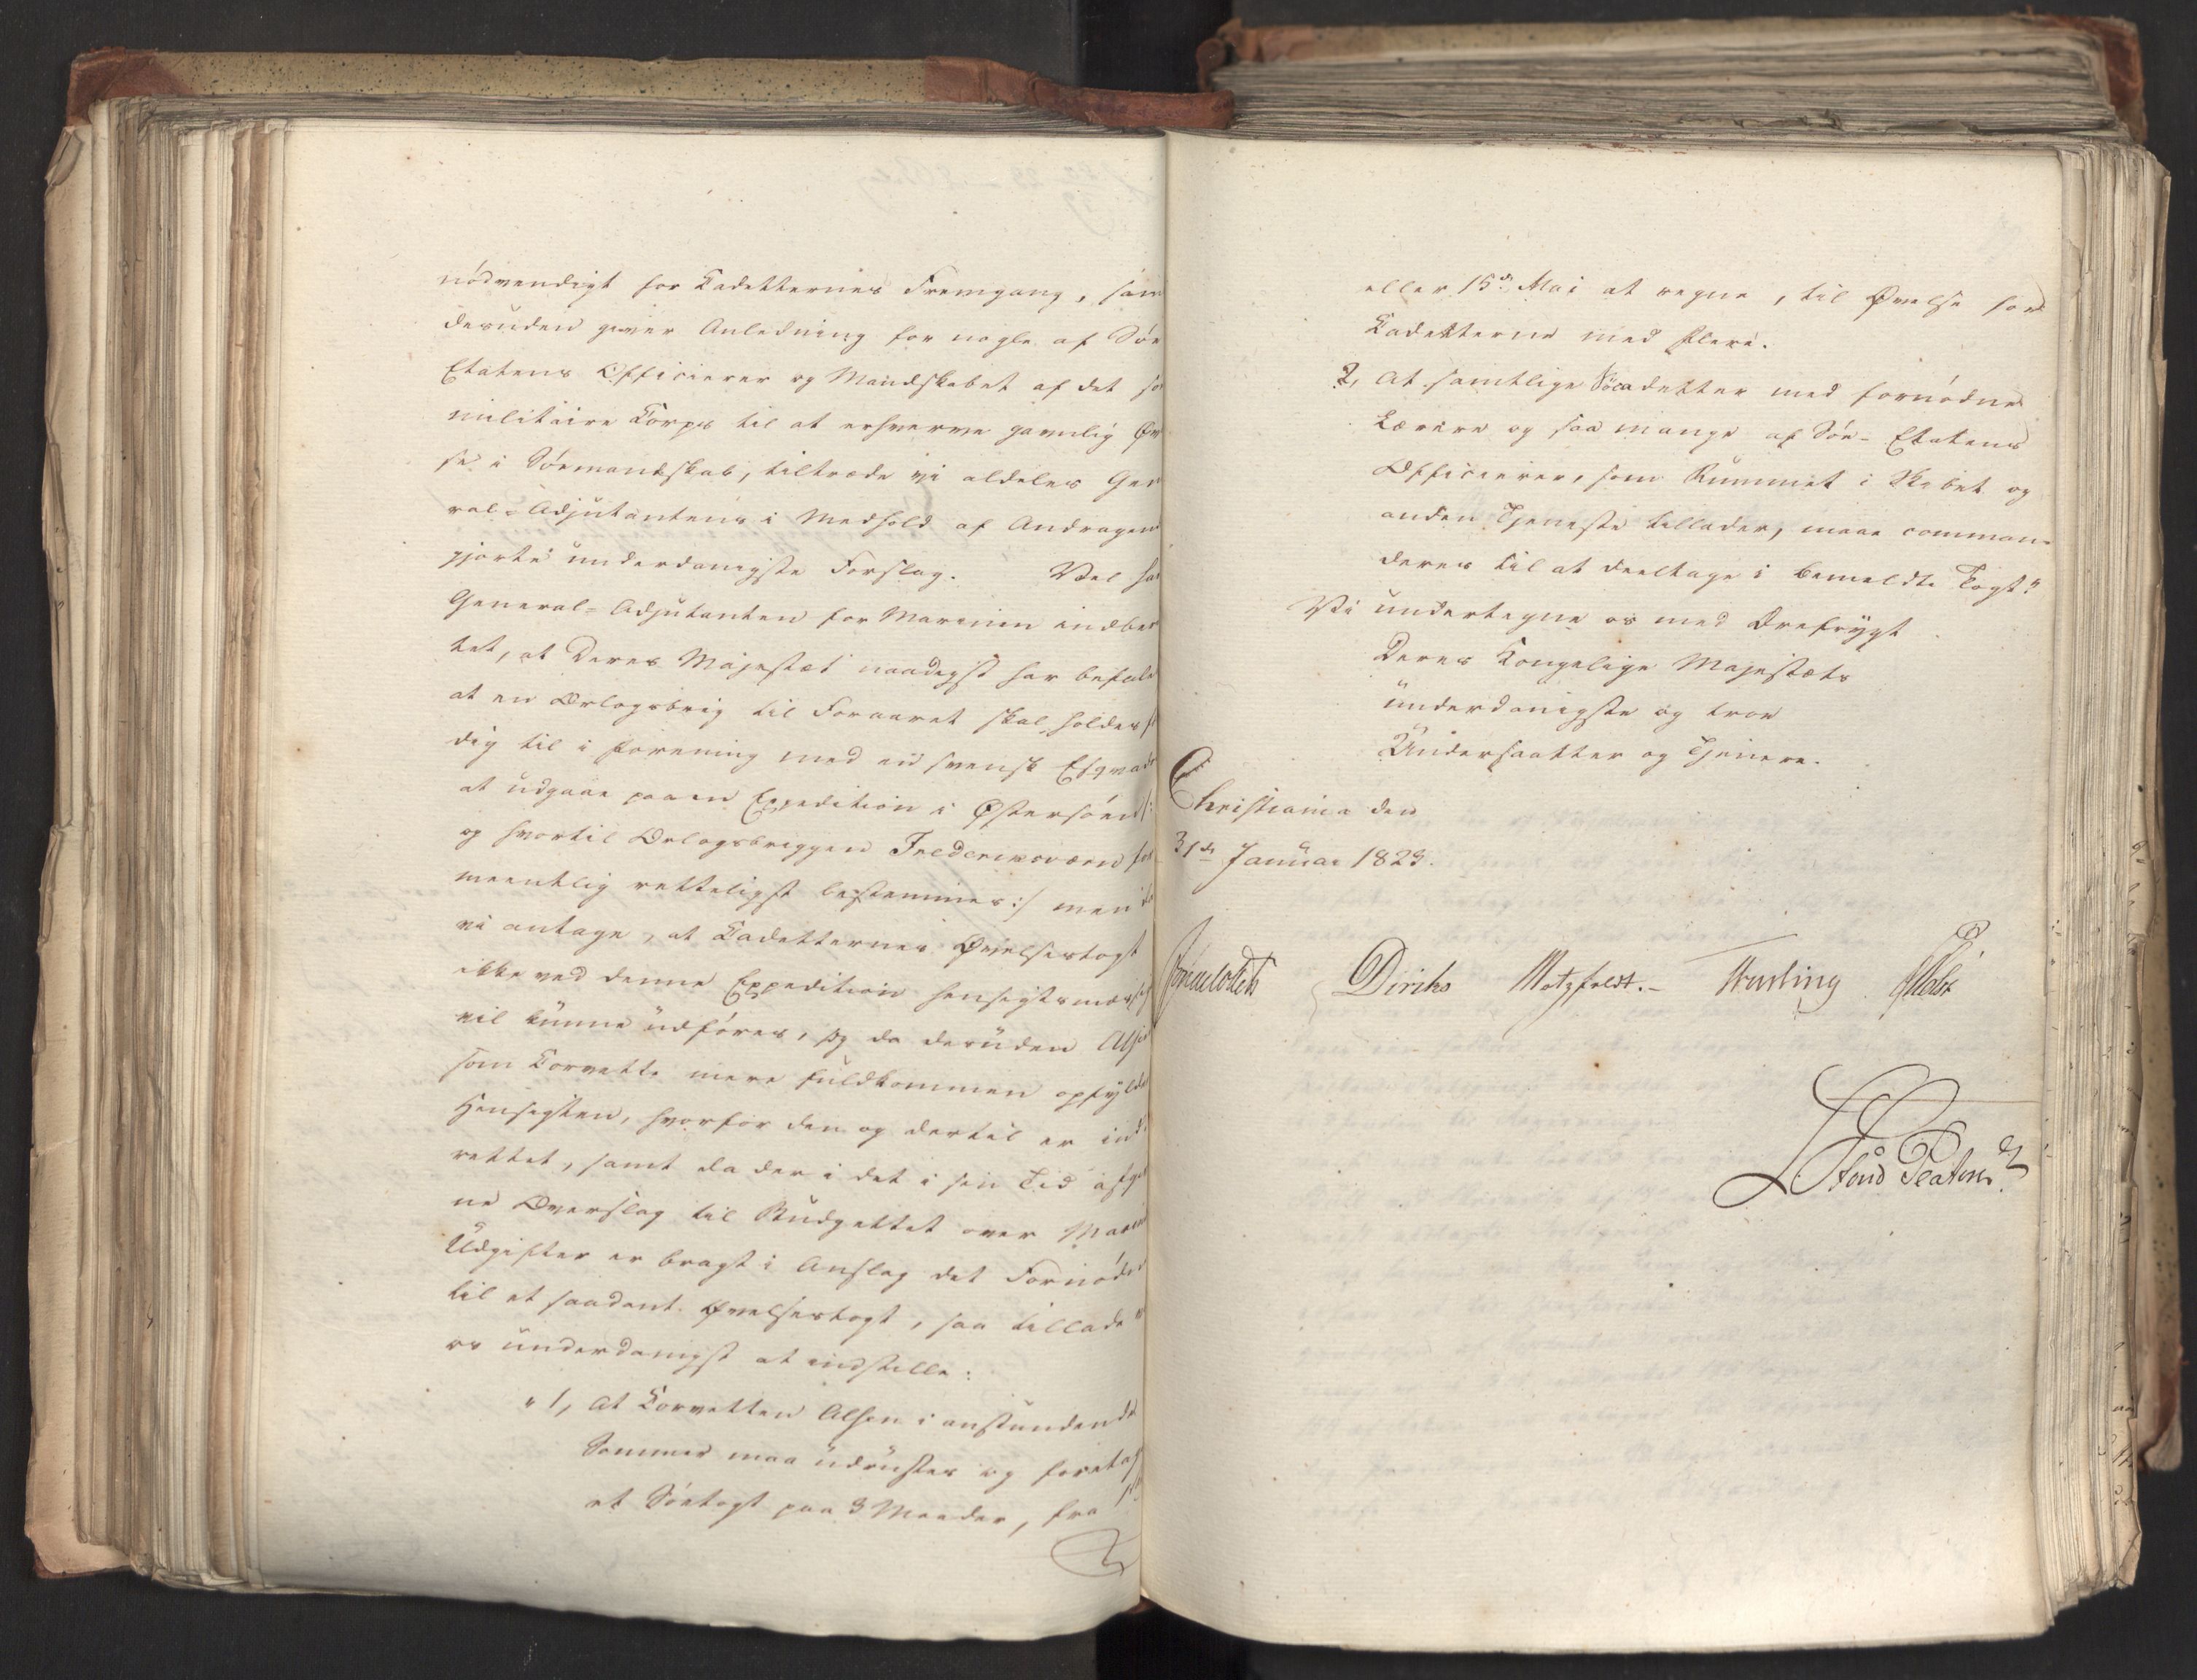 nödvendigt for Cadetternes Fremgang, som
desuden giver Anledning for nogle af Söe
Etatens Officierer og Mandskabet af det sö
militaire Corps til at erhverve gavnlig Øv
se i Söemandskab, tiltræde vi aldeles Gen
ral-Adjutantens i Medhold af Andragen
gjorte underdanigste Forslag. Vel har
General-Adjutanten for Marinen indber
tet, at Deres Majestæt naadigst har befale
at en Orlogsbrig til Foraaret skal holdes f
dig til i Forening med en svensk Esqvadr
at udgaae paa en Expedition i Østersöen /:
og hvortil Orlogsbriggen Frederiksværn for
meentlig retteligst bestemmes :/ men da
vi antage, at Cadetternes Øvelsestogt
ikke ved denne Expedition hensigtsmæssigt
vil kunne udföres, og da desuden Alsen
som Corvette mere fuldkommen opfylder
Hensigten, hvorfor den og dertil er ind-
rettet, samt da der i det i sin Tid afgiv
ne Overslag til Budgettet over Marine
Udgifter er bragt i Anslag det Fornödne
til et saadant Øvelsestogt, saa tillade vi
os underdanigst at indstille:
" 1, At Corvetten Alsen i anstundende
Sommer maa udrustes og foretage
et Söetogt paa 3 Maaneder, fra 1ste
eller 15de Mai at regne, til Øvelse for
Cadetterne med Flere.
2, At samtlige Söcadetter med fornödne
Lærere og saa mange af Söe-Etatens
Officierer, som Rummet i Skibet og
anden Tjeneste tillader, maae comman-
deres til at deeltage i bemeldte Togt."
Vi undertegne os med Ærefrygt
Deres Kongelige Majestæts
underdanigste og troe
Undersaatter og Tjenere.
Christiania den
31te Januar 1829.
Diriks Motzfeldt.- Fasting